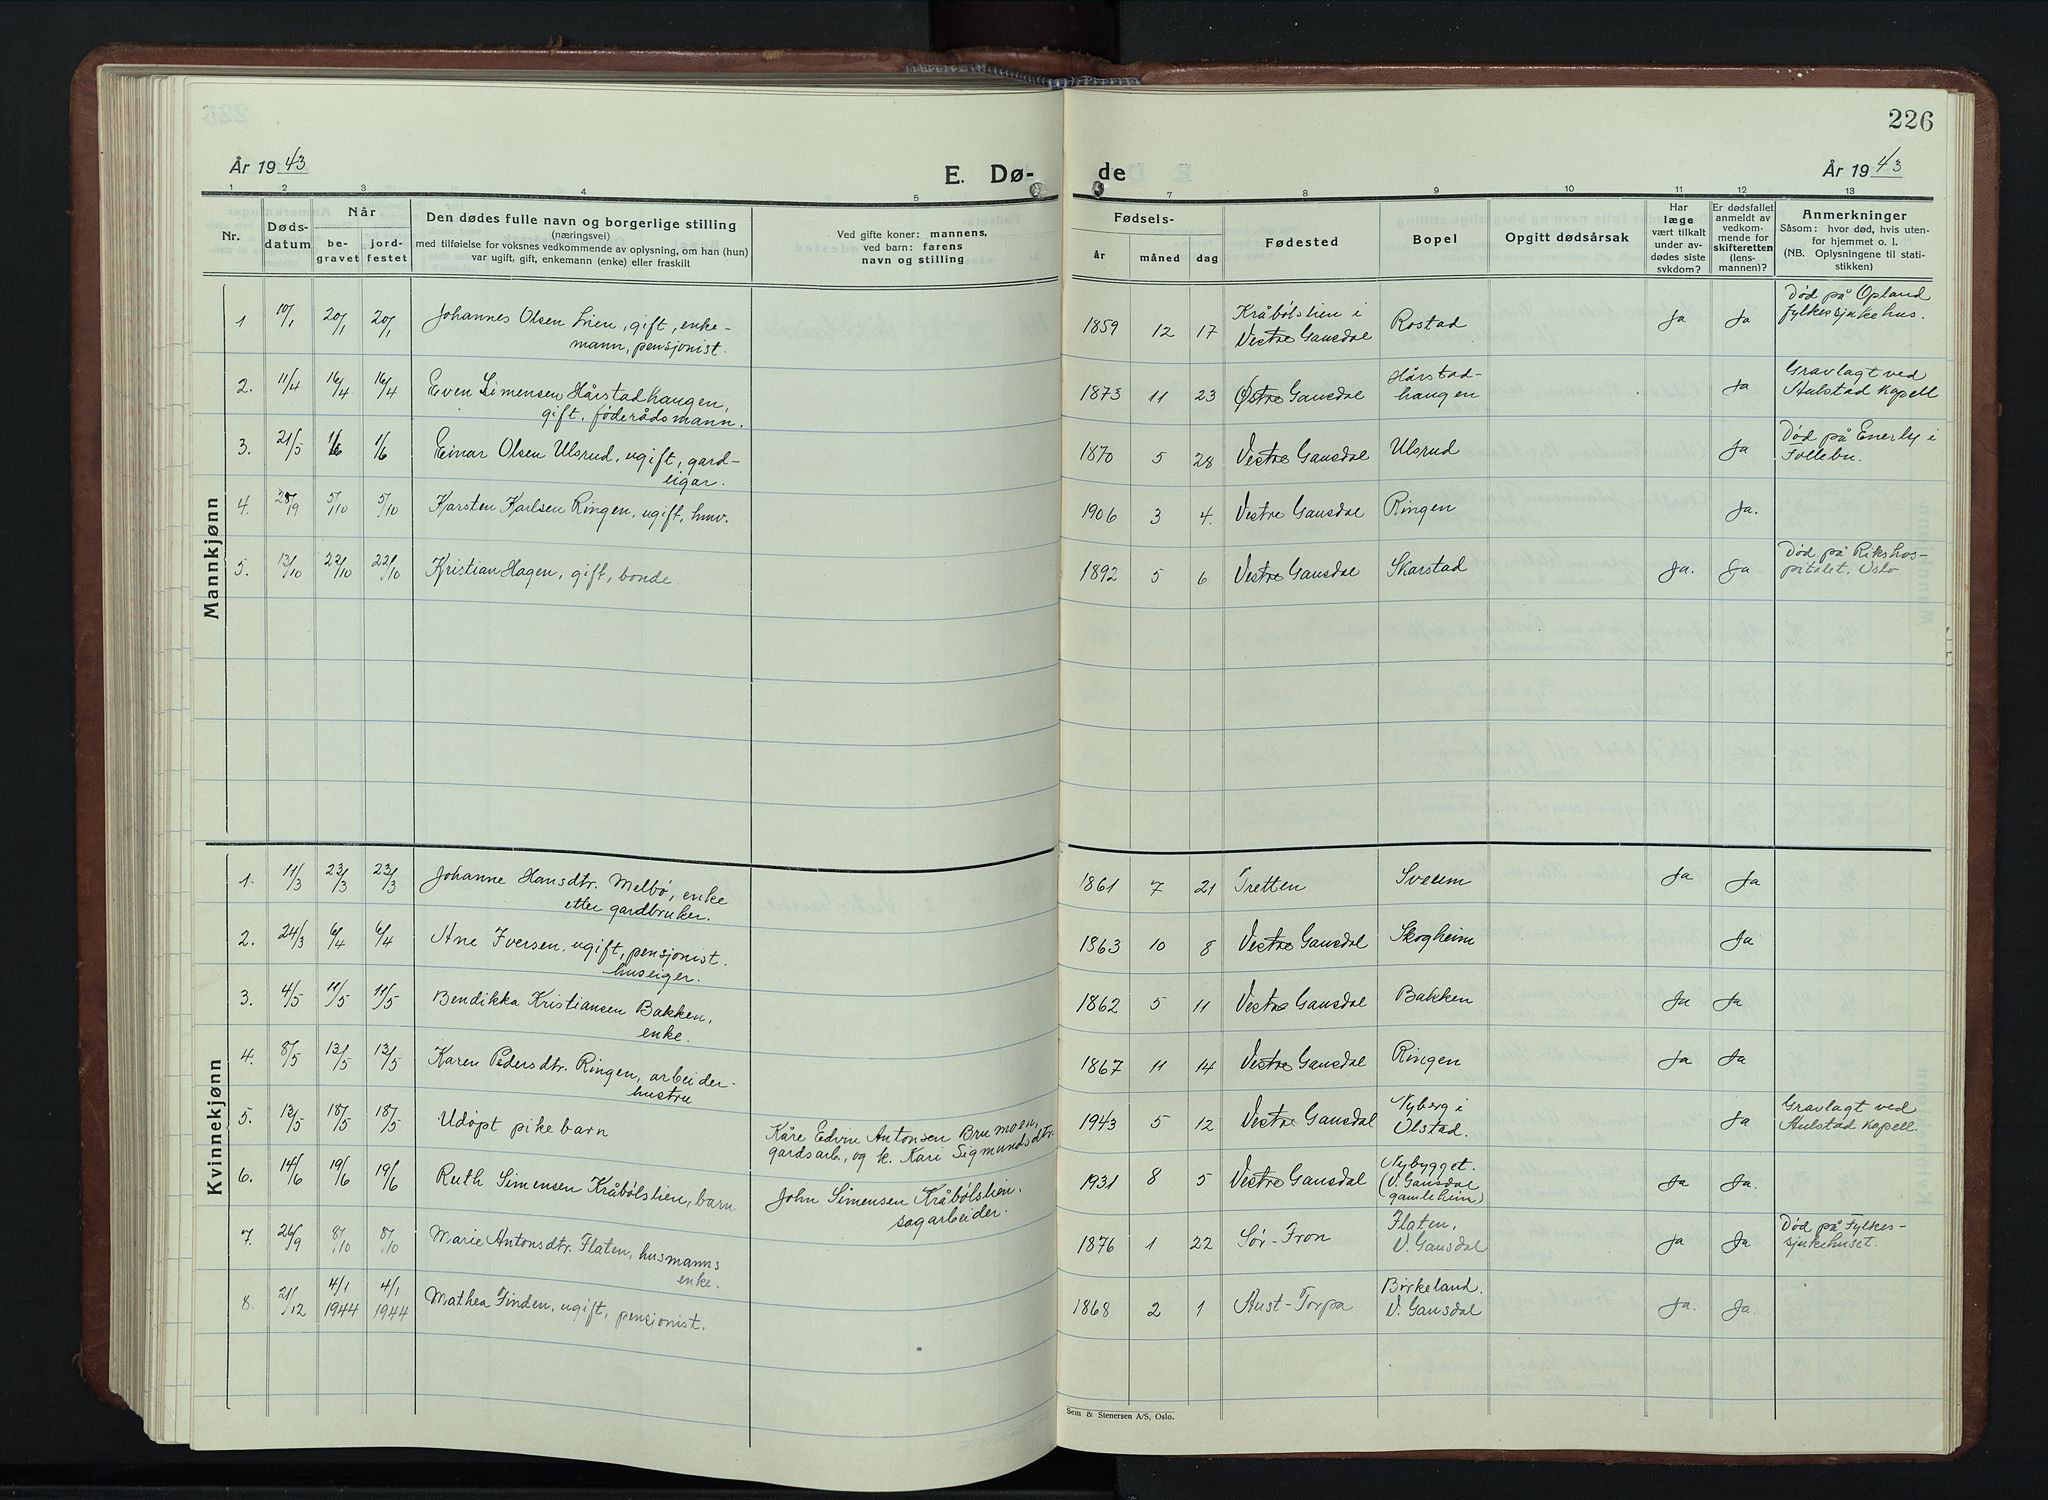 226
År 1943
E. Dø-
de
År 1943
1 2 3 4 5
7 8 9 10 11 12 13
Nr.
Døds-
datum
Når
be-
gravet
jord-
festet
Den dødes fulle navn og borgerlige stilling
(næringsvei)
med tilføielse for voksnes vedkommende av oplysning, om han (hun)
var ugift, gift, enkemann (enke) eller fraskilt
Ved gifte koner: mannens,
ved barn: farens
navn og stilling
Fødsels-
år
måned
dag
Fødested
Bopel
Opgitt dødsårsak
Har
læge
vært tilkalt
under av-
dødes siste
sykdom?
Er dødsfallet
anmeldt av
vedkom-
mende for
skifteretten
(lens-
mannen)?
Anmerkninger
Såsom: hvor død, hvis uten-
for hjemmet o. l.
(NB. Oplysningene til stati-
stikken)
Mannkjønn
1 10/1 20/1 20/1 Johannes Olsen Lien, gift, enke-
mann, pensjonist.
1859 12 17 Kråbølslien i
Vestre Gausdal
Rostad Ja Ja Død på Opland
fylkessjukehus.
2. 11/4 16/4 16/4 Even Simensen Hårstadhaugen,
gift, føderådsmann.
1873 11 23 Østre Gausdal Hårstad-
haugen
Ja Gravlagt ved
Aulstad kapell
3. 21/5 1/6 1/6 Einar Olsen Ulsrud, ugift, gard-
eigar.
1870 5 28 Vestre Gausdal Ulsrud Ja Død på Enerly i
Follebu.
4. 28/9 5/10 5/10 Karsten Karlsen Ringen, ugift, hmv.
1906 3 4. Vestre Gausdal Ringen Ja.
5. 13/10 22/10 22/10 Kristian Hagen, gift, bonde.
1892 5 6 Vestre Gausdal Skarstad Ja. Ja Død på Rikshos-
pitalet. Oslo
Kvinnekjønn
1. 17/3 23/3 23/3 Johanne Hansdtr. Melbö, enke
etter gardbruker.
1861 7 21 Tretten Sveum Ja Ja
2. 24/3 6/4 6/4 Ane Iversen, ugift, pensjonist.
huseiger.
1863 10 8 Vestre Gausdal Skogheim Ja
3. 4/5 11/5 11/5 Bendikka Kristiansen Bakken,
enke.
1862 5 11 Vestre Gausdal Bakken Ja Ja
4. 8/5 13/5 13/5 Karen Pedersdtr. Ringen, arbeider-
hustru
1867 11 14 Vestre Gausdal Ringen Ja Ja
5. 13/5 18/5 18/5 Udöpt pikebarn Kåre Edvin Antonsen Brumoen,
gardsarb., og k. Kari Sigmundsdtr.
1943 5 12 Vestre Gausdal Nyberg i
Olstad.
Ja Gravlagt ved
Aulstad kapell.
6. 14/6 19/6 19/6 Ruth Simensen Kråbølslien, barn John Simensen Kråbølslien.
sagarbeider.
1931 8 5 Vestre Gausdal Nybygget.
(V. Gausdal
gamleheim)
Ja Ja.
7. 26/9 8/10 8/10 Marie Antonsdtr. Flaten, husmanns
enke.
1876 1 22 Sør-Fron Flaten,
V. Gausdal
Ja Ja Død på Fylkes-
sjukehuset.
8. 21/12 4/1 1944 4/1 1944 Mathea Linden, ugift, pensjonist.
1868 2 1 Aust-Torpa Birkeland.
V. Gausdal
Ja. Ja.
Sem & Stenersen A/S, Oslo.